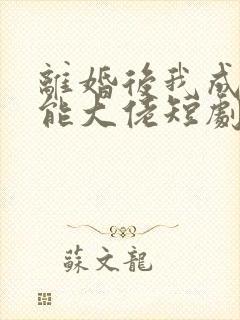 離婚後我成
能大佬短劇
蘇文龍